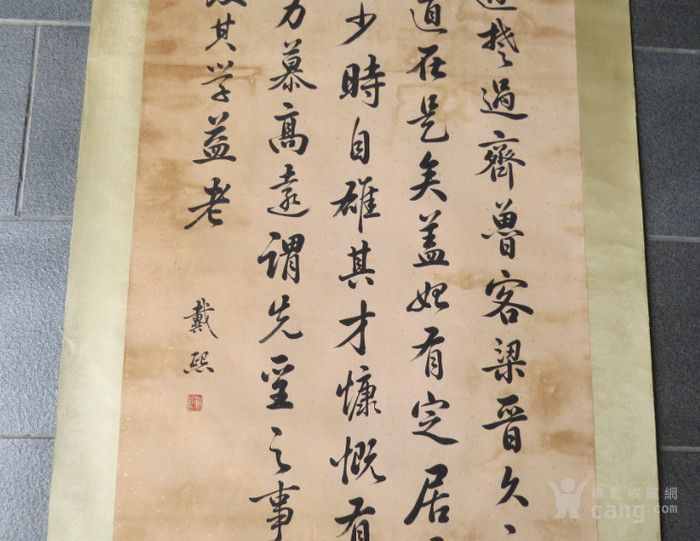 楚過齊魯客梁晉久
道在是矣蓋始有定居
少時自雄其才慷慨有
力慕高遠謂先聖之事
其學益老
戴熙
華夏收藏網
cang.com